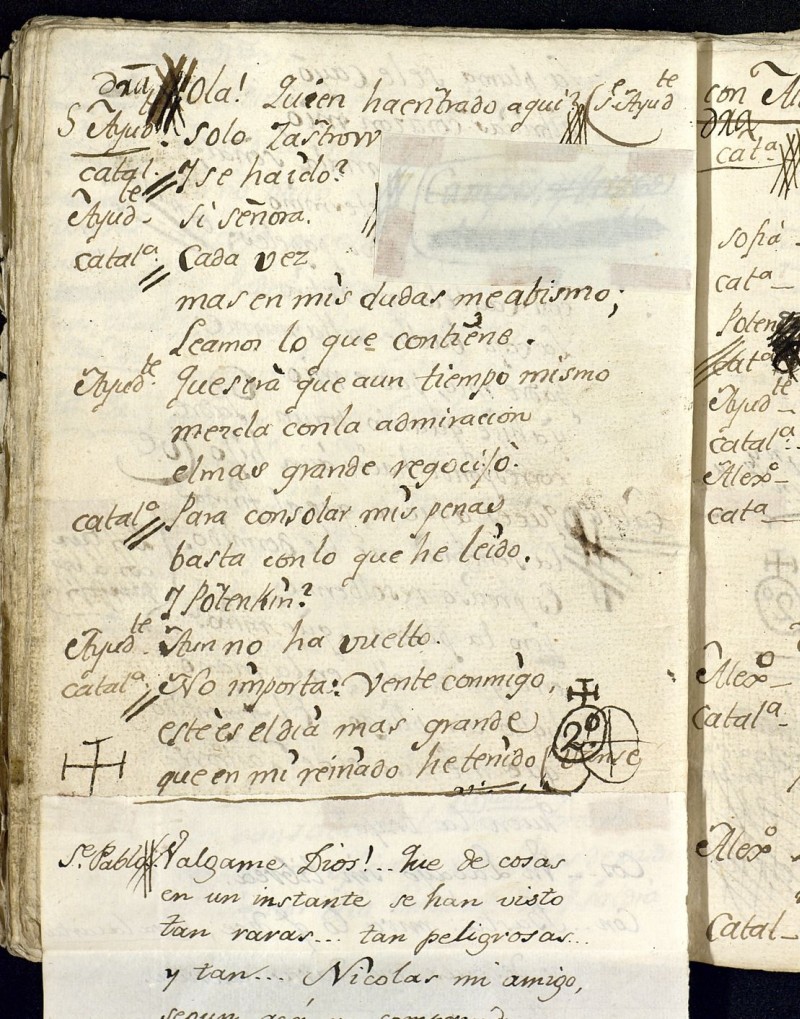 Ola! Quien ha entrado aqui? (Se. Ayud.te
S. Ayud.te Solo Zastrow
catal. Y se ha ido?
Ayud.te si señora.
catal.a Cada vez
mas en mis dudas me abismo;
Leamos lo que contiene.
Ayud.te Que será que aun tiempo mismo
mezcla con la admiracion
el mas grande regocijo.
catal.a Para consolar mis penas
basta con lo que he leido.
Y Potenkin?
Ayud.te Aun no ha vuelto.
catal.a No importa: Vente conmigo,
este es el dia mas grande
que en mi reinado he tenido (vanse
2º
Se. Pablo Valgame Dios!.. Que de cosas
en un instante se han visto
tan raras... tan peligrosas...
y tan... Nicolas mi amigo,
con
cat.a
sofia
cat.a
Poten
cat.a
Ayud.te
catal.a
Alex.o
cat.a
Alex.o
catal.a
Alex.o
Catal